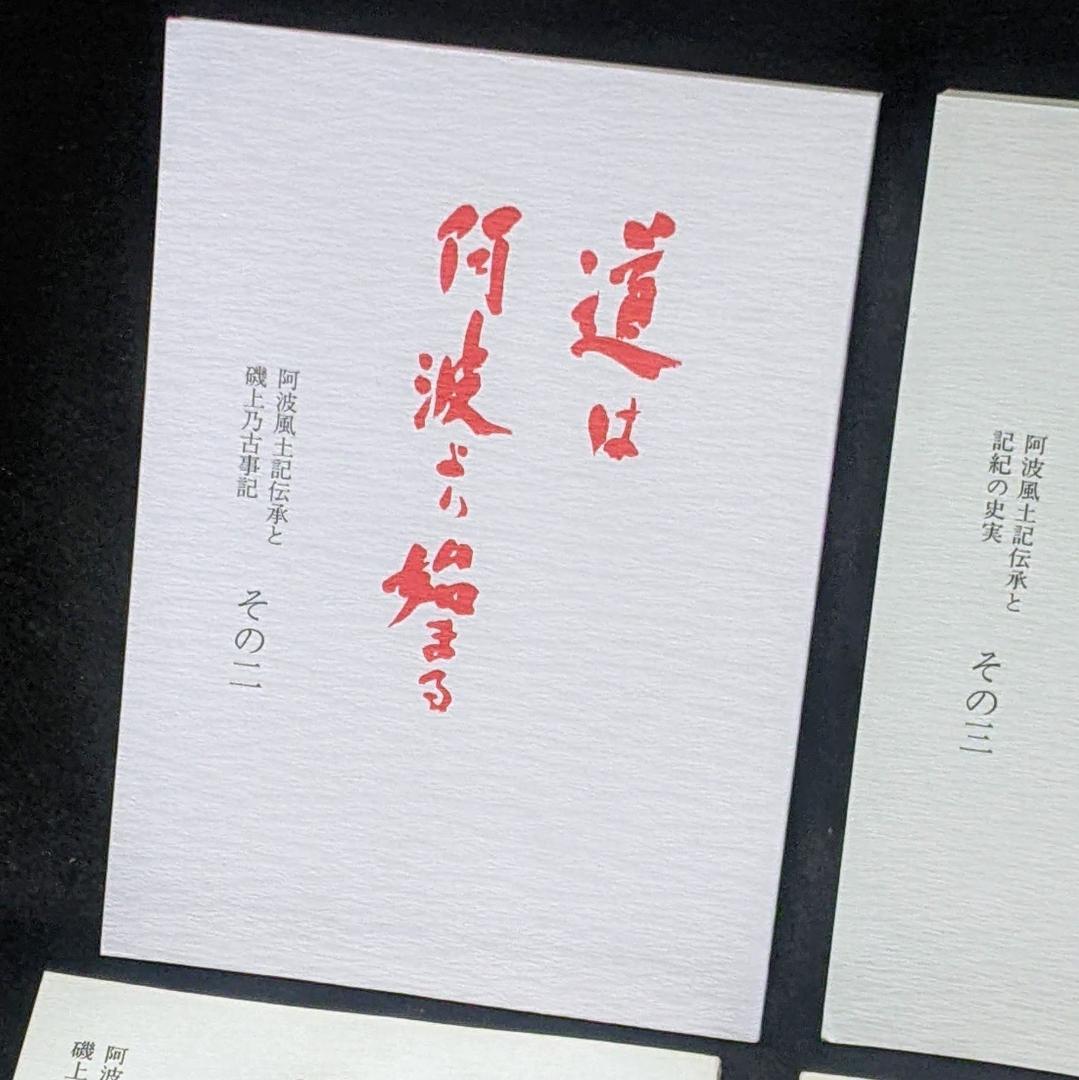 道は
阿波より始まる
阿波風土記伝承と
磯上乃古事記
その二
阿波風土記伝承と
記紀の史実
その三
阿波
磯上